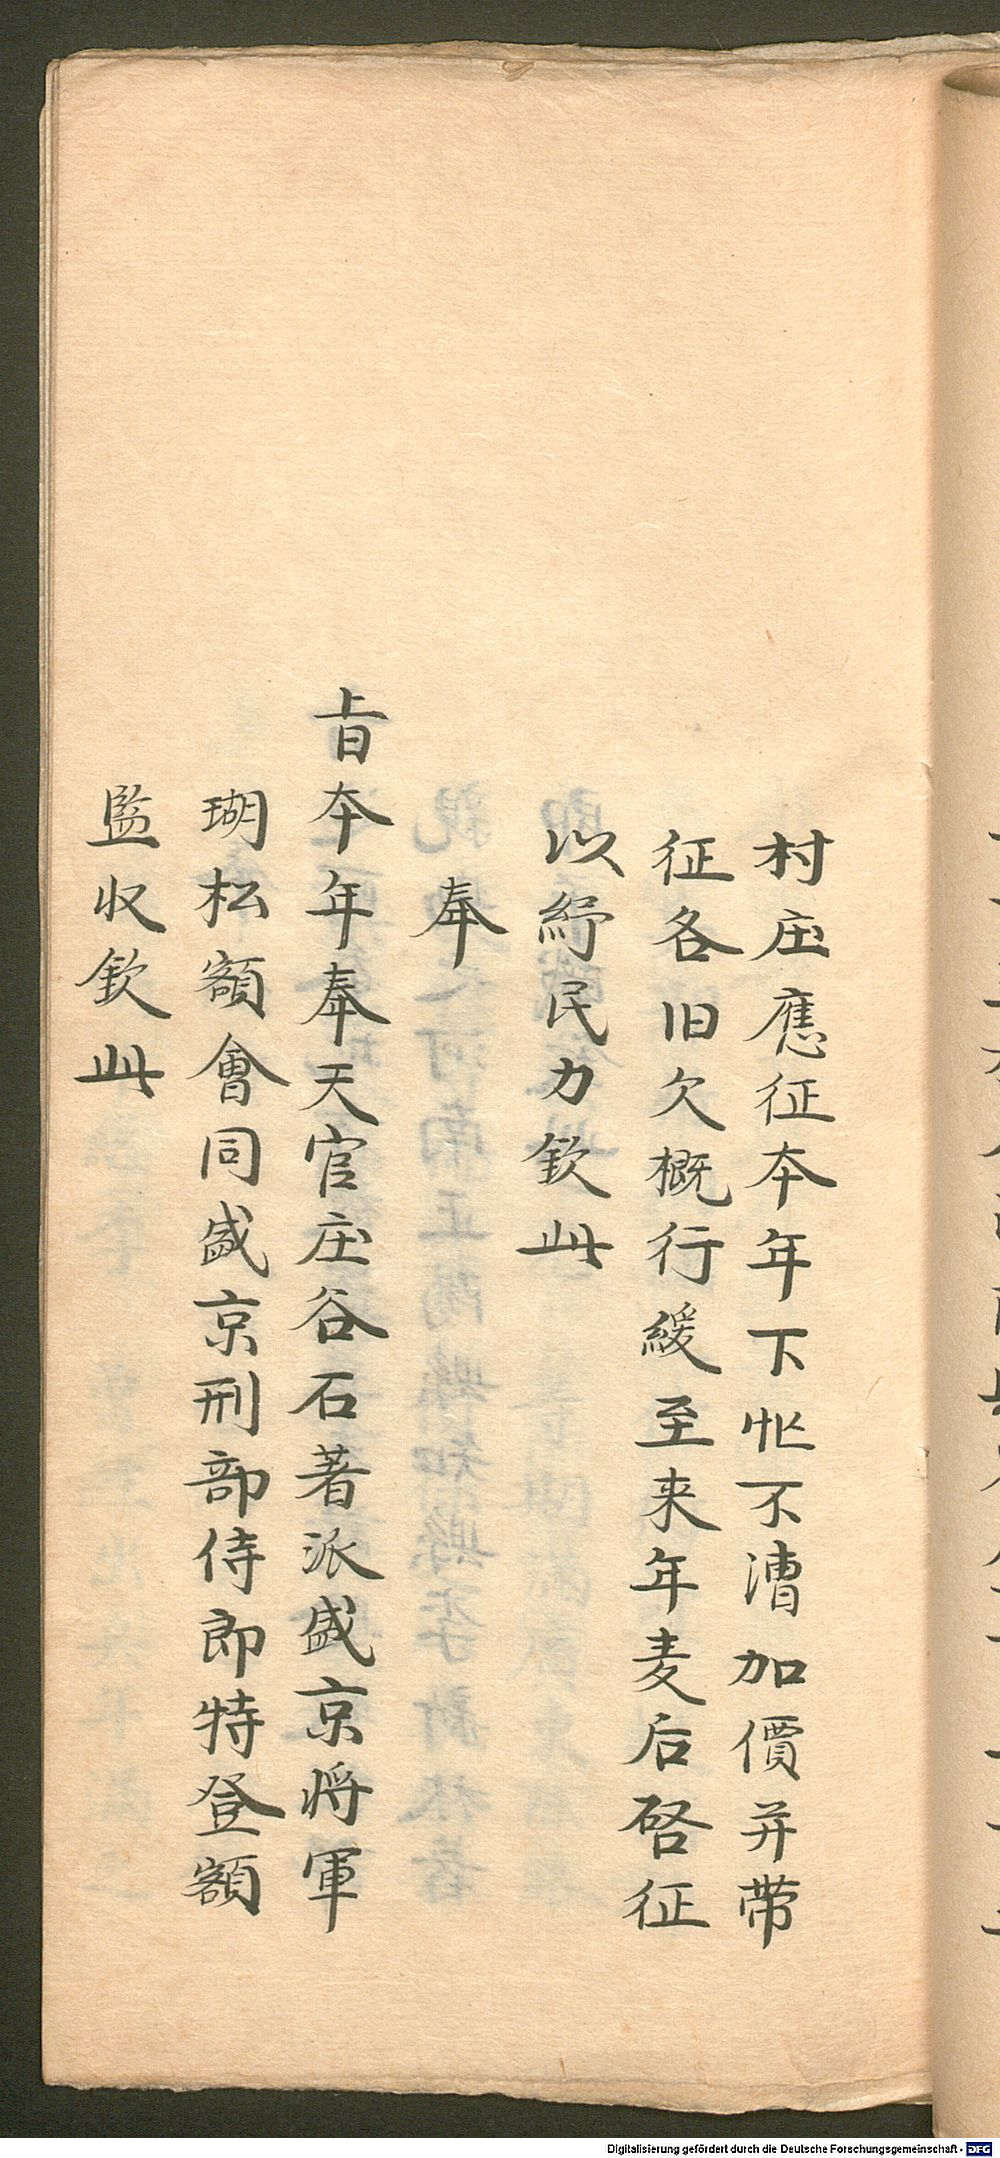 村庄應征本年下忙不漕加價并带
征各旧欠概行緩至来年麦后啓征
以紓民力欽此
奉
旨本年奉天官庄谷石著派盛京将軍
瑚松額會同盛京刑部侍郎特登額
監收欽此
Digitalisierung gefördert durch die Deutsche Forschungsgemeinschaft - DFG